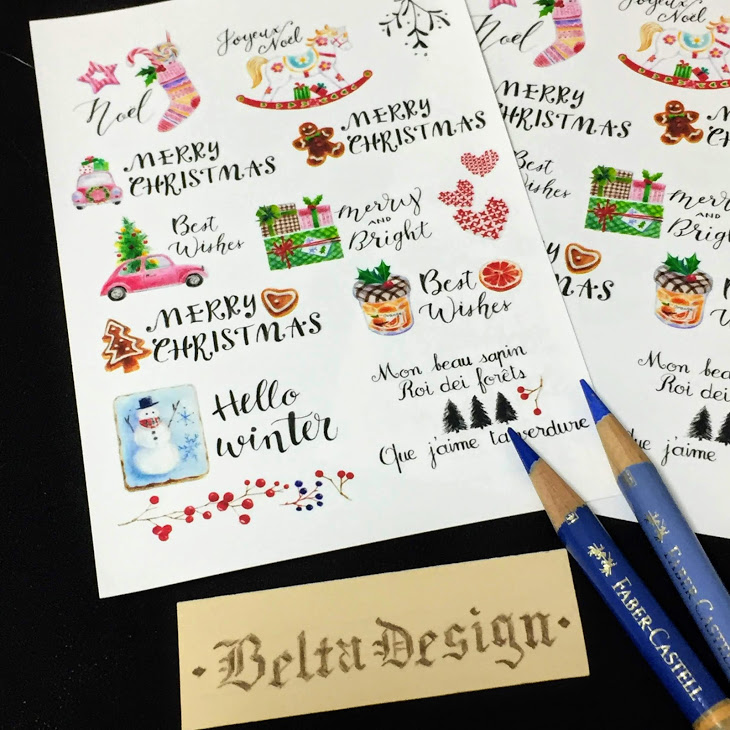 Joyeux
Noël
Noël
MERRY
CHRISTMAS
MERRY
CHRISTMAS
Best
Wishes
Merry
AND
Bright
MERRY
CHRISTMAS
Best
Wishes
Hello
winter
Mon beau sapin
Roi dei forêts
Que j'aime ta verdure
Noël
Joyeux
Noël
MERRY
CHRISTMAS
MERRY
CHRISTMAS
Best
Wishes
Merry
AND
MAS
Mon beau
Roi dei
Que j'aime
FABER-CASTELL
FABER-CASTELL
·Belta Design·